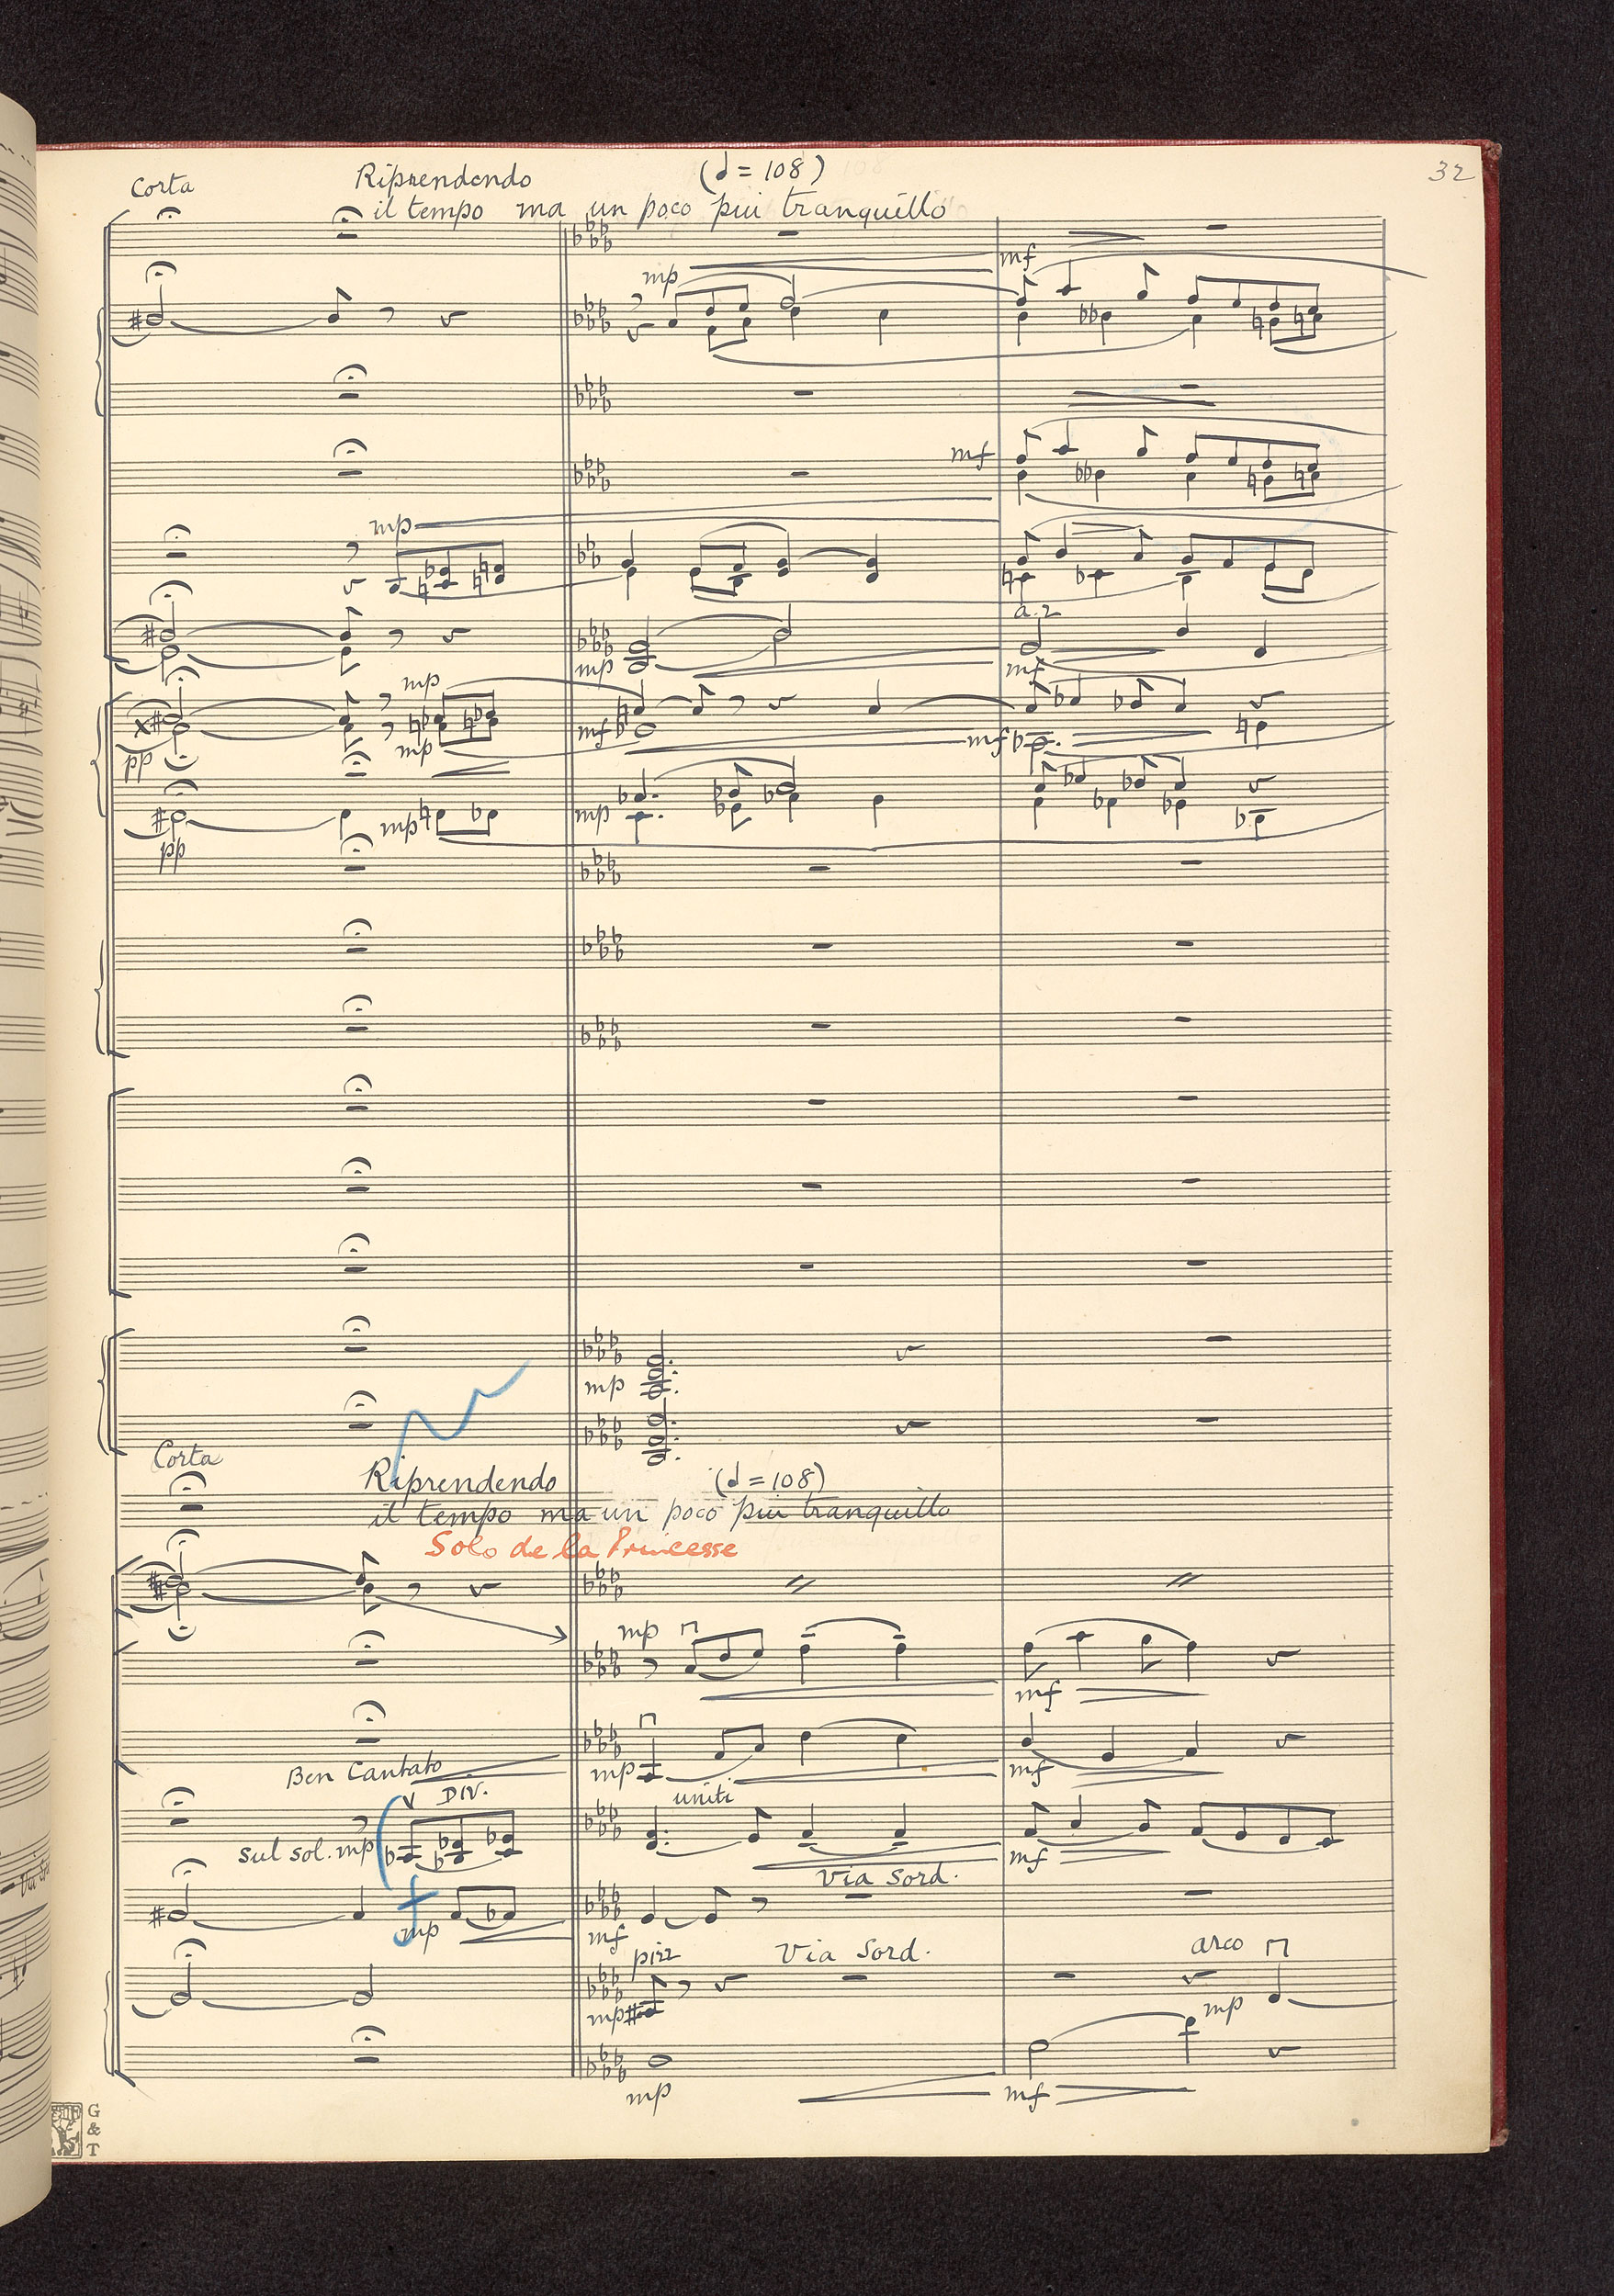 32
Corta
Riprendendo
(𝅗𝅥 = 108)
il tempo ma un poco più tranquillo
mf
mp
mf
mp
a.2
mp
mf
mp
mf
mf
pp
mp
mp
mp
pp
mp
Corta
Riprendendo
(𝅗𝅥 = 108)
il tempo ma un poco più tranquillo
Solo de la Princesse
mp
mf
Ben Cantato
mp
mf
DIV.
uniti
sul sol. mp
mf
Via Sord.
mp
mf
pizz
Via Sord.
arco
mp
mp
mp
mf
G
&
T